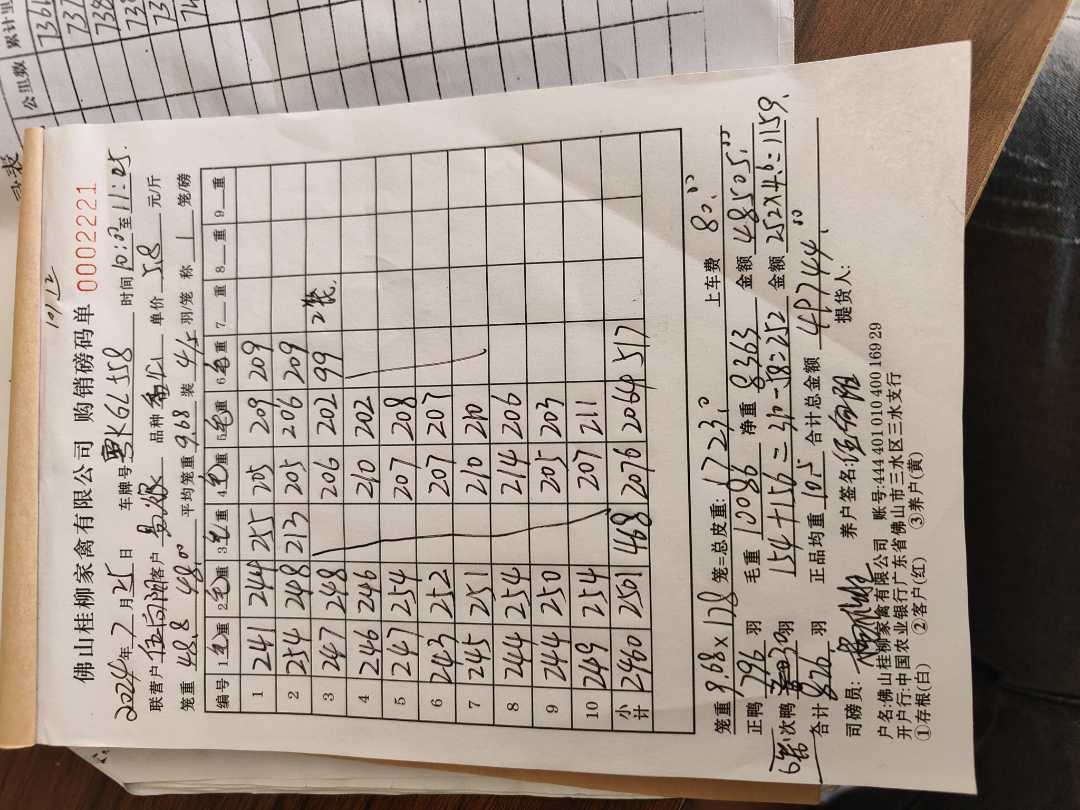 累计里
公里数
736
737
738
10/12
佛山桂柳家禽有限公司 购销磅码单 0002221
2024年7月25日 车牌号粤KGL558 时间10:0至11:25
联营户伍向阳客户 品种 单价5.8元/斤
笼重48.8 48.00 平均笼重9.68装4/5羽/笼 称1笼/磅
编号 1毛重 2毛重 3毛重 4毛重 5毛重 6毛重 7重 8重 9重
1 241 244 255 205 209 209
2 254 248 213 205 206 209
3 247 248 206 202 99 2笼
4 246 246 210 202
5 247 254 207 208
6 243 252 207 207
7 245 251 210 210
8 244 254 214 206
9 244 250 205 203
10 249 254 207 211
小计 2460 2501 468 2076 2064 517
笼重9.68×178 笼=总皮重:1723.0 上车费80.00
正鸭796羽 毛重10086 净重8363 金额48505.00
6笼次鸭30羽 154+156=310-58=252 金额252×4.6=1159.
合计826羽 正品均重10.5 合计总金额49744.00
司磅员: 养户签名:伍向阳 提货人:
户名:佛山桂柳家禽有限公司 账号:444 401 010 400 169 29
开户行:中国农业银行广东省佛山市三水区三水支行
①存根(白) ②客户(红) ③养户(黄)